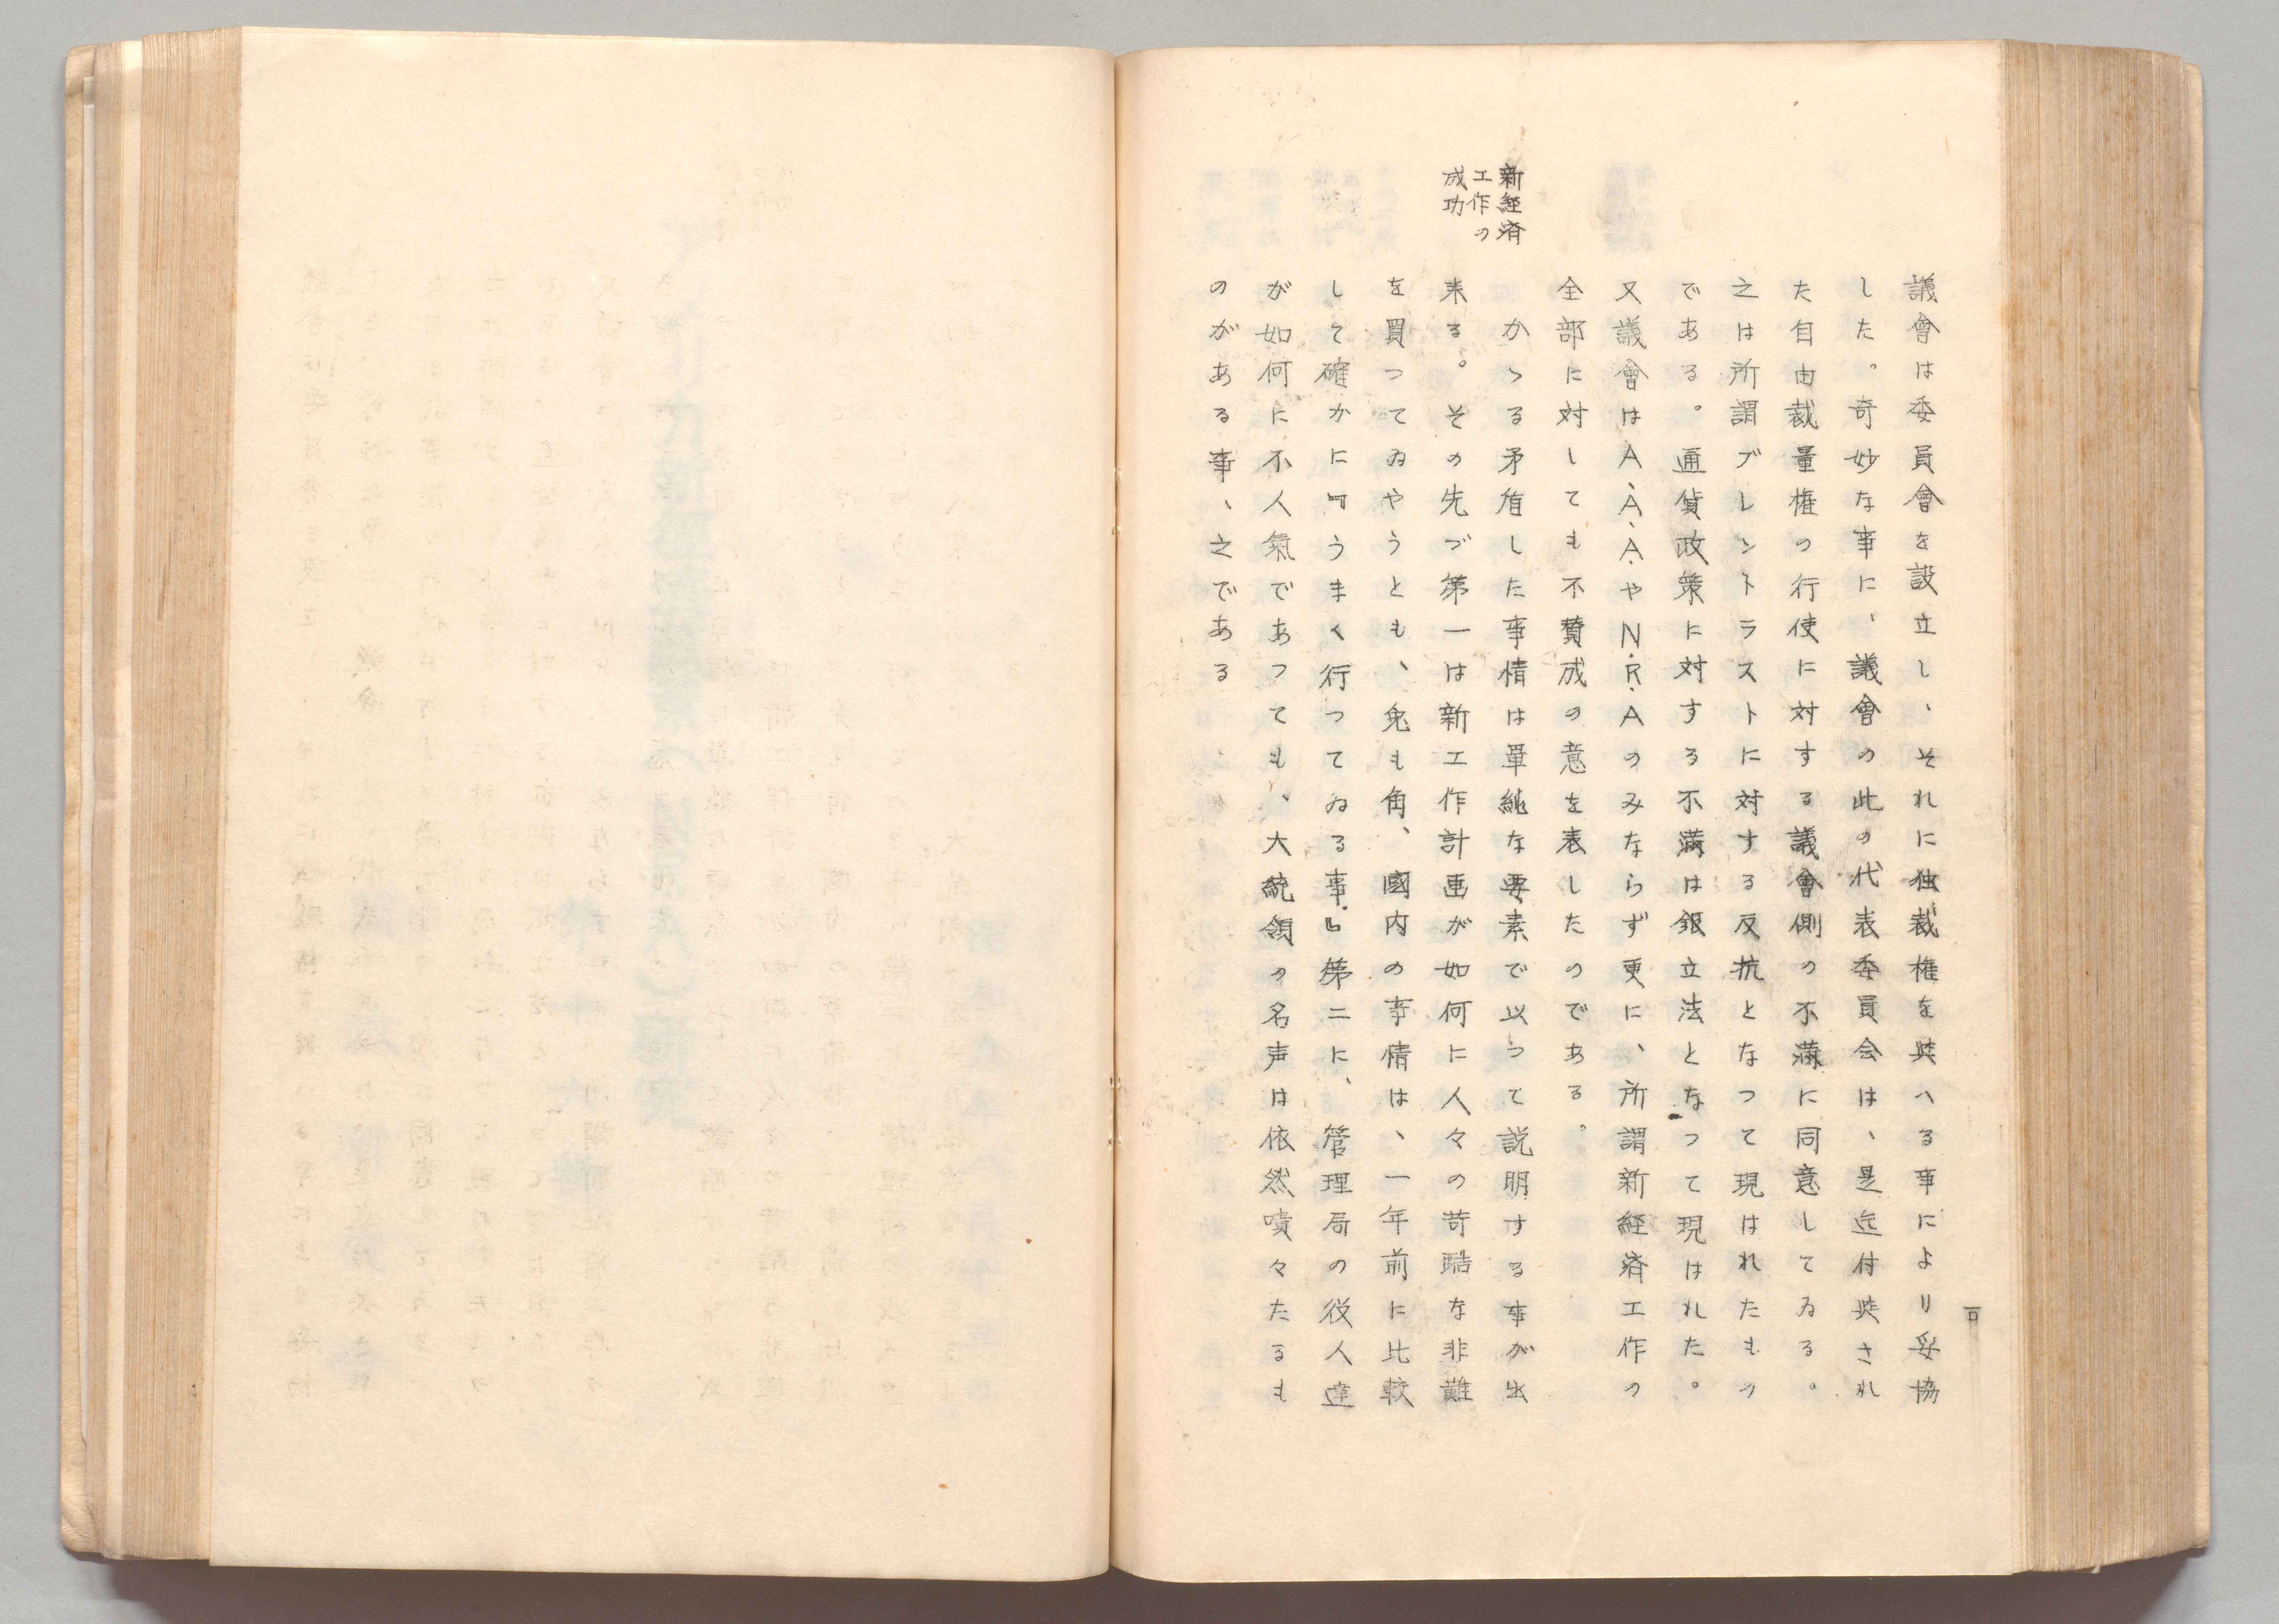 議會は委員會を設立し、それに独裁権を与へる事により妥協
した。奇妙な事に、議會の此の代表委員会は、是迄付与され
た自由裁量権の行使に対する議會側の不満に同意してゐる。
之は所謂ブレントラストに対する反抗となつて現はれたもの
である。通貨政策に対する不満は銀立法となつて現はれた。
又議會はA.A.A.やN.R.Aのみならず更に、所謂新経済工作の
全部に対しても不賛成の意を表したのである。
新経済
工作の
成功
かゝる矛盾した事情は単純な要素で以つて説明する事が出
来る。その先づ第一は新工作計画が如何に人々の苛酷な非難
を買つてゐやうとも、兎も角、國内の事情は、一年前に比較
して確かに『うまく行つてゐる事』第二に、管理局の役人達
が如何に不人氣であつても、大統領の名声は依然嘖々たるも
のがある事、之である